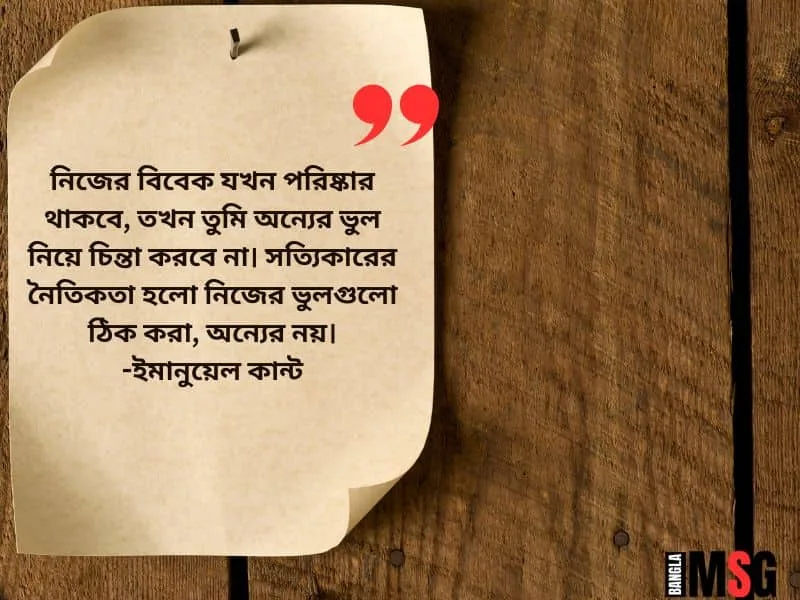 নিজের বিবেক যখন পরিষ্কার
থাকবে, তখন তুমি অন্যের ভুল
নিয়ে চিন্তা করবে না। সত্যিকারের
নৈতিকতা হলো নিজের ভুলগুলো
ঠিক করা, অন্যের নয়।
-ইমানুয়েল কান্ট
BANGLA MSG